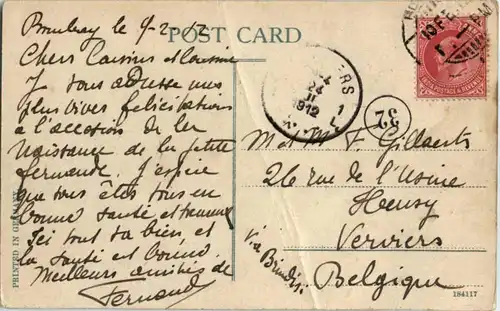 Bombay le 9-2-12
POST CARD
Chers Cousins et Cousine
Je vous adresse mes
plus vives félicitations
à l'occasion de la
Naissance de la petite
Fernande. J'espère
que vous êtes tous en
bonne santé et
Ici tout va bien et
la santé est bonne.
Meilleurs amitiés de
Fernand
PRINTED IN GERMANY
10 FE
INDIA POSTAGE & REVENUE
VERVIERS
24
II
1912
1
L
37
M et Mme F Gillaerts
26 rue de l'Usine
Heusy
Verviers
Belgique
Via Brindisi
184117